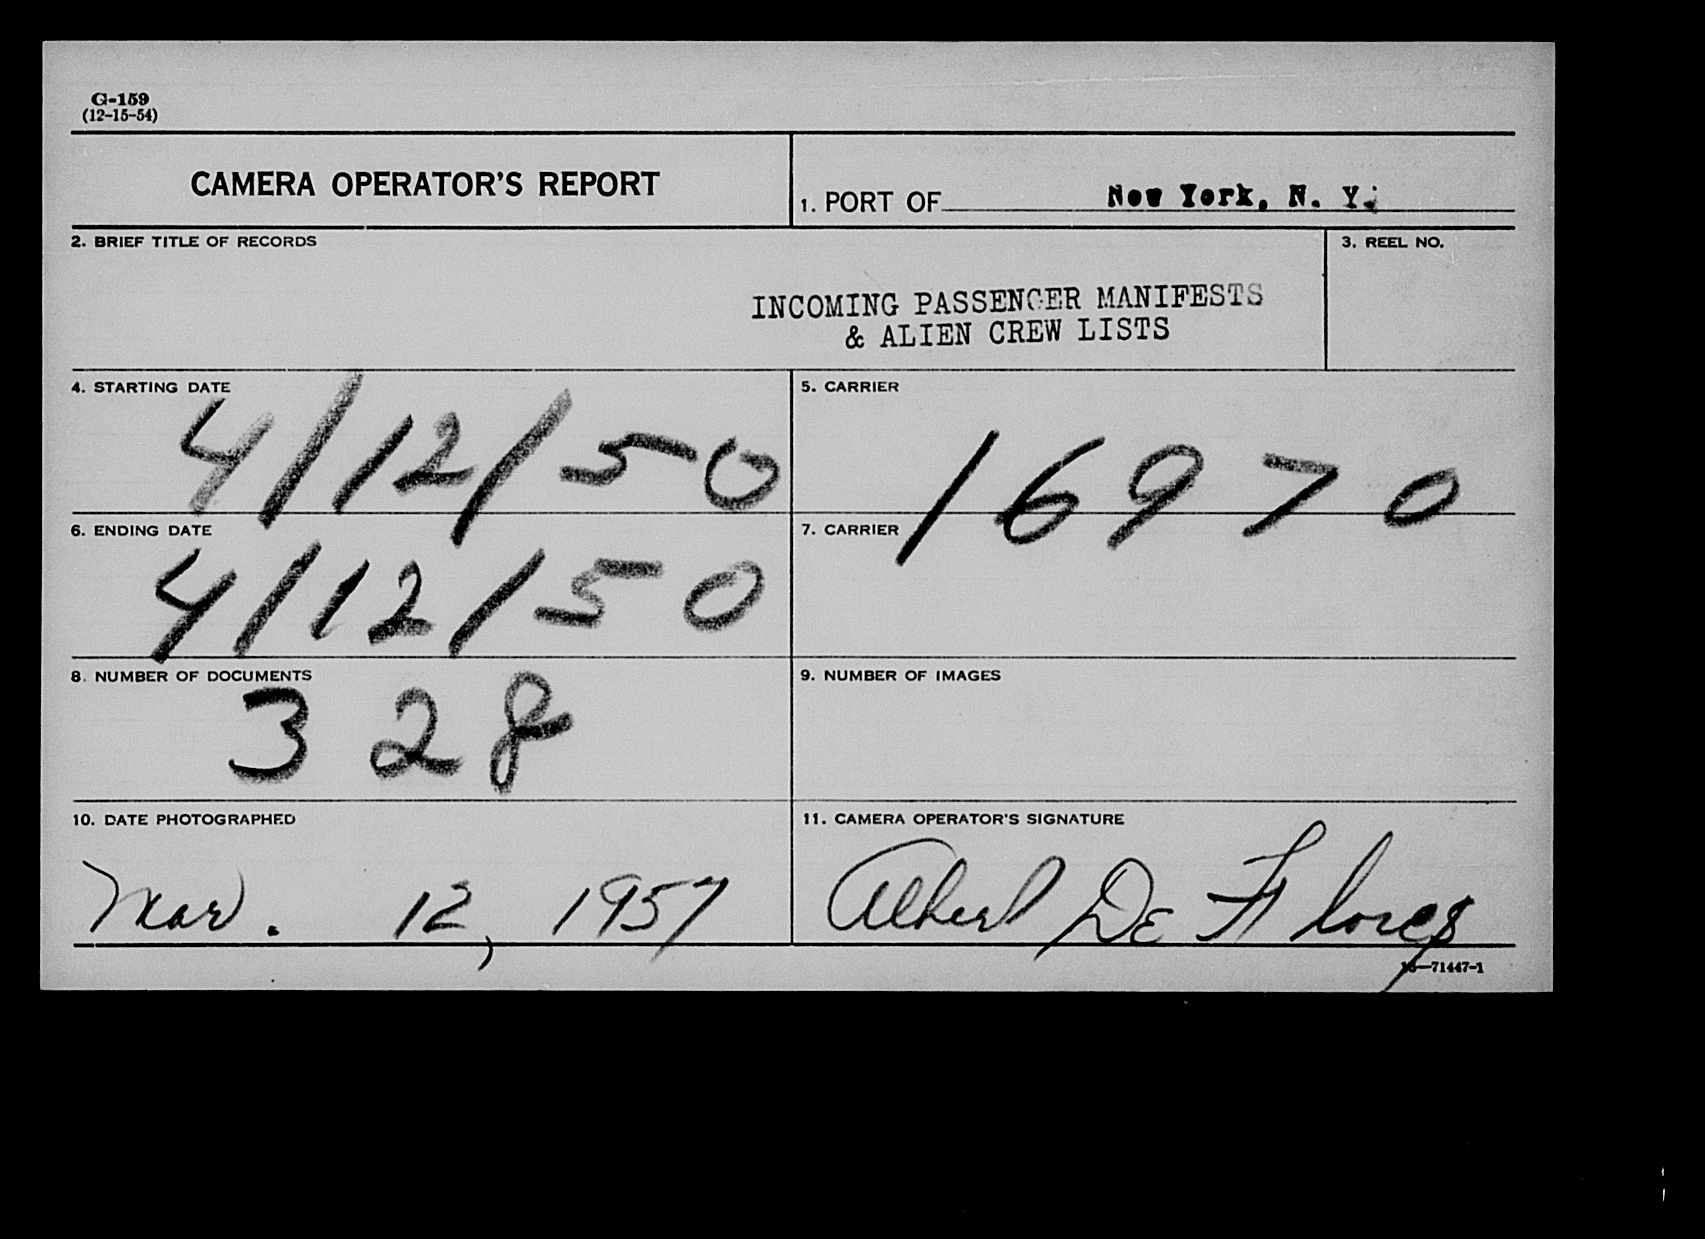 G-159
(12-15-54)
CAMERA OPERATOR'S REPORT
1. PORT OF New York, N. Y.
2. BRIEF TITLE OF RECORDS
3. REEL NO.
INCOMING PASSENGER MANIFESTS
& ALIEN CREW LISTS
4. STARTING DATE
4/12/50
5. CARRIER
16970
6. ENDING DATE
4/12/50
7. CARRIER
8. NUMBER OF DOCUMENTS
328
9. NUMBER OF IMAGES
10. DATE PHOTOGRAPHED
Mar. 12, 1957
11. CAMERA OPERATOR'S SIGNATURE
Albert De Flores
16—71447-1